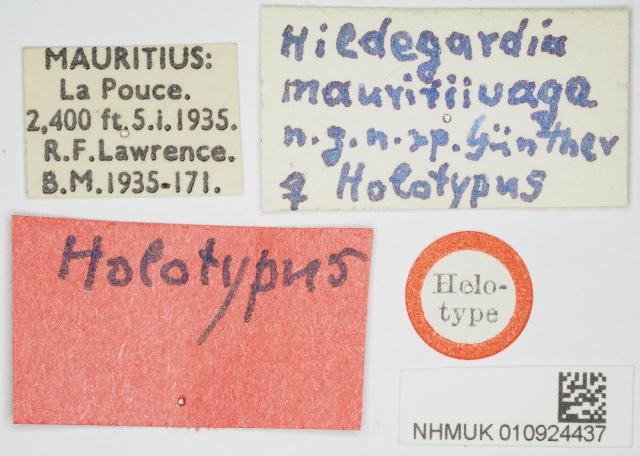 MAURITIUS:
La Pouce.
2,400 ft.5.i.1935.
R.F.Lawrence.
B.M.1935-171.
Hildegardia
mauritiivaga
n.g.n.sp. Günther
♀ Holotypus
Holotypus
Holo-
type
NHMUK 010924437